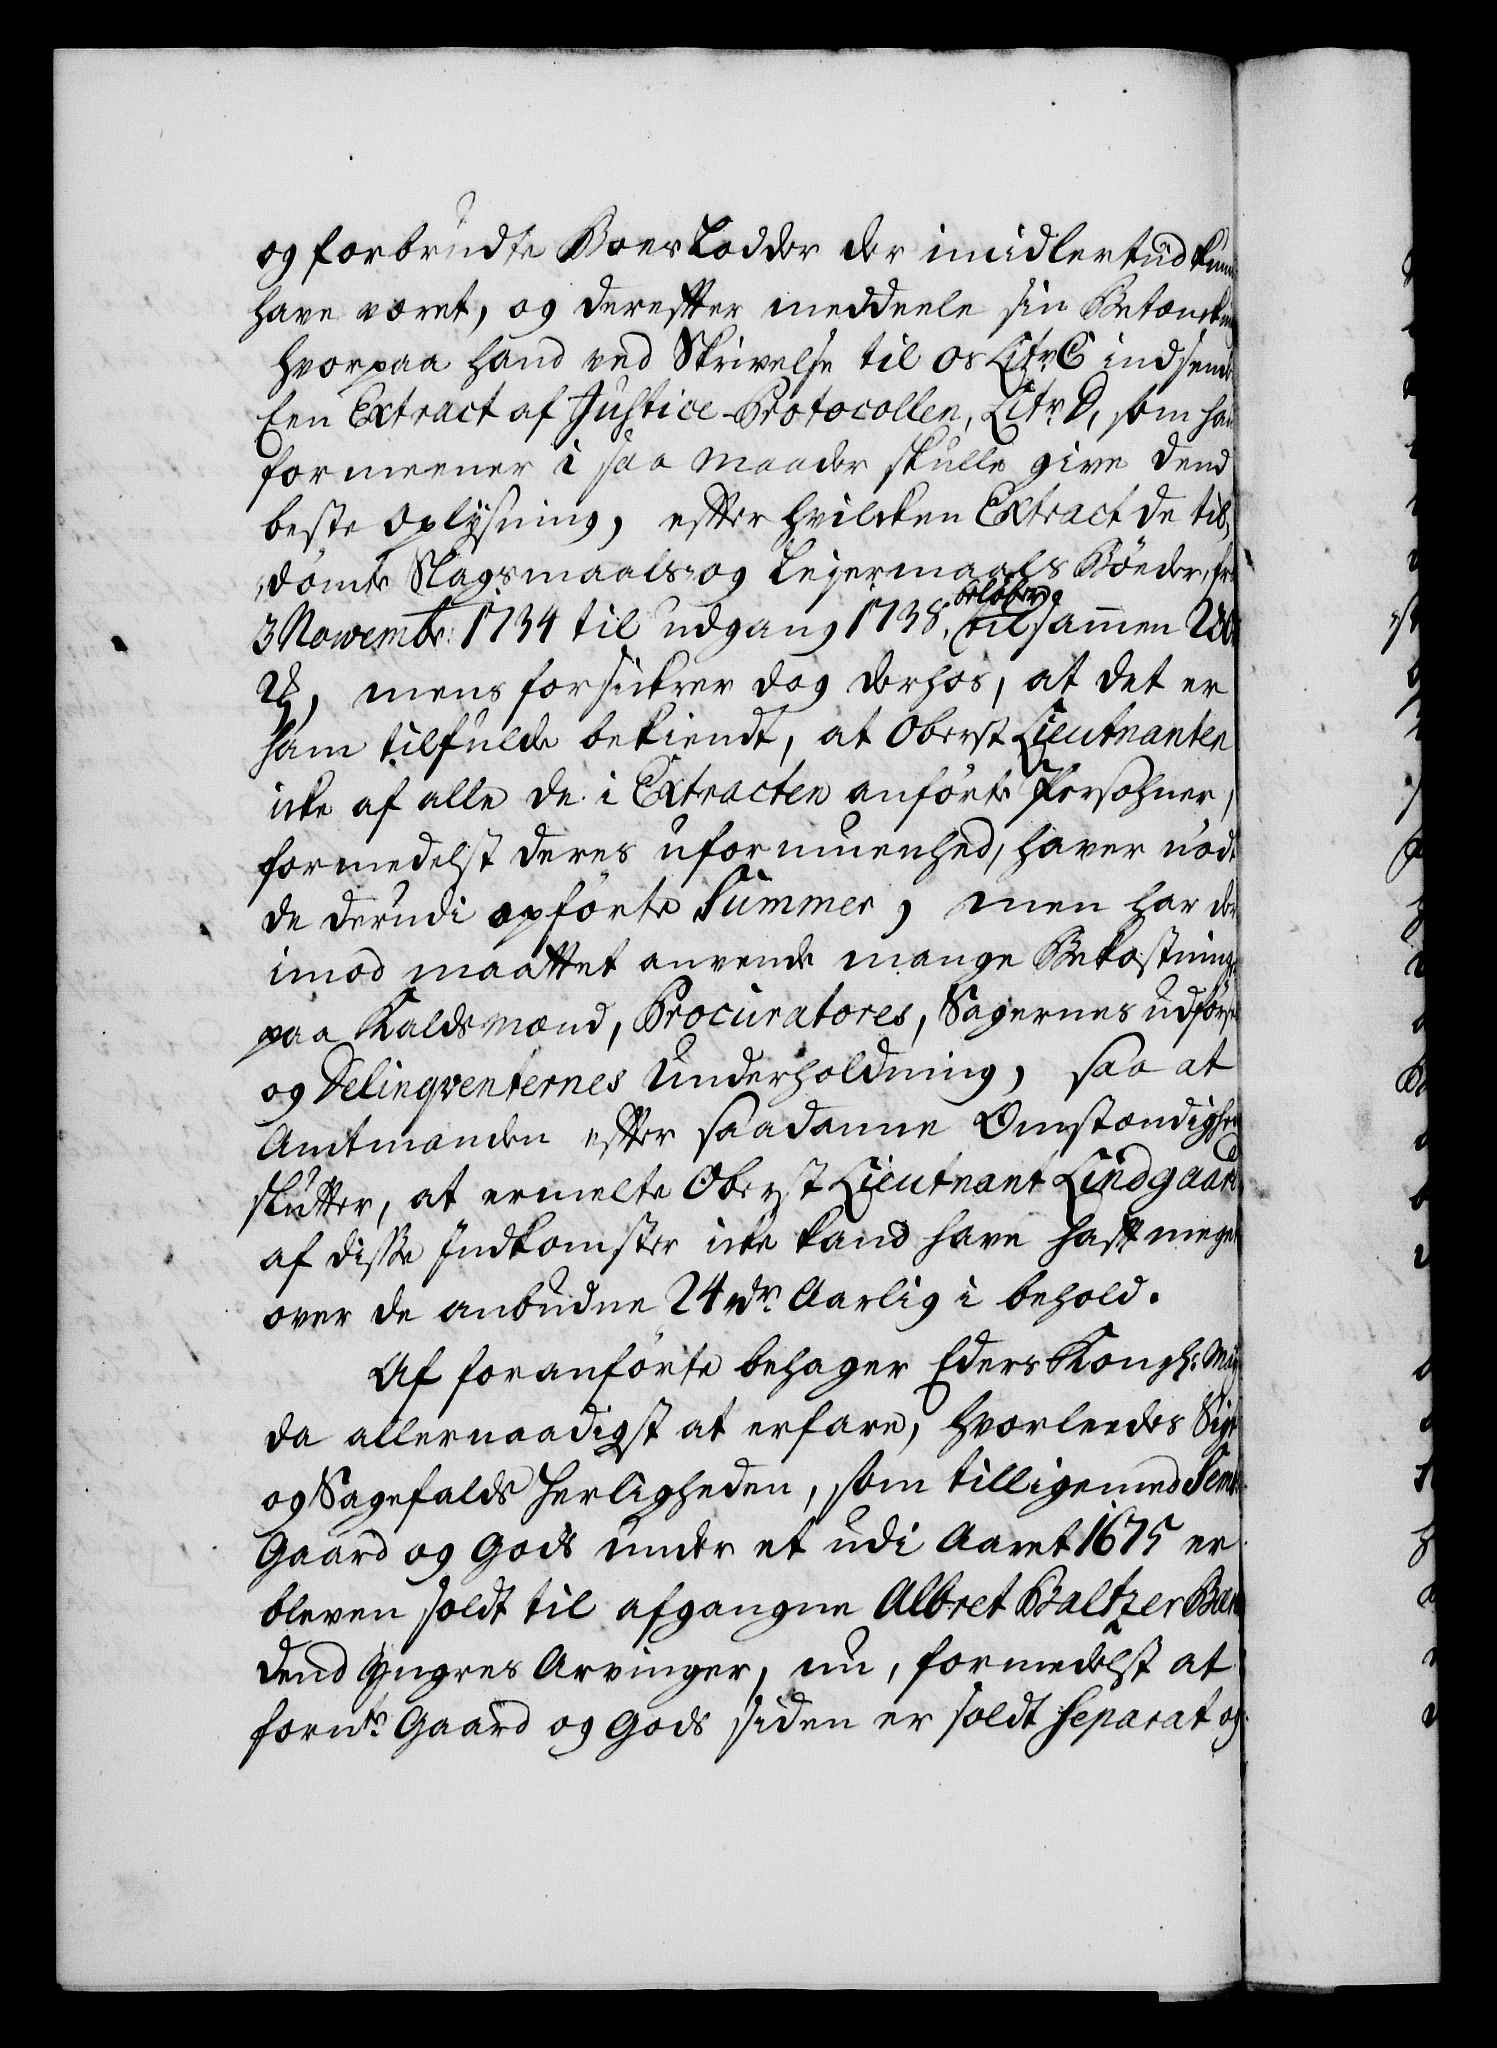 og forbrudte Boes Lodder der imidlertiid kunn
have været, og derefter meddeele sin Betænckn
hvorpaa hand ved Skrivelse til os Litr. C indsend
Een Extract af Justice-Protocollen, Litr. D, som ha
formeener i saa maader skulle give dend
beste oplysning, efter hvilcken Extract de til
dömte Slagsmaals- og Leyermaals Böeder, fr
3 Novembr: 1734 til udgang 1738. beløber tilsamen
, mens forsickrer dog derhos, at det er
ham tilfulde bekiendt, at Oberst Lieutnanten
icke af alle de i Extracten anförte Persohner,
formedelst deres uformuenhed, haver nödt
de derudi opförte Summer, men har der
imod maattet anvende mange Bekostning
paa Kaldsmænd, Procuratores, Sagernes udförse
og Delinqventernes Underholdning, saa at
Amtmanden efter saadanne Omstændighe
slutter, at ermelte Oberst Lieutnant Lindgaard
af disse Indkomster icke kand have haft meget
over de anbudne 24 rdr. Aarlig i behold.
Af foranförte behager Eders Kongl: May
da allernaadigst at erfare, hvorleedes Sigt
og Sagefalds Herligheden, som tilligemed Sem
Gaard og Gods under et udi Aaret 1675 er
bleven soldt til afgangne Albret Baltzer Ber
dend Yngres Arvinger, nu, formedelst at
fornte. Gaard og Gods siden er soldt separat og